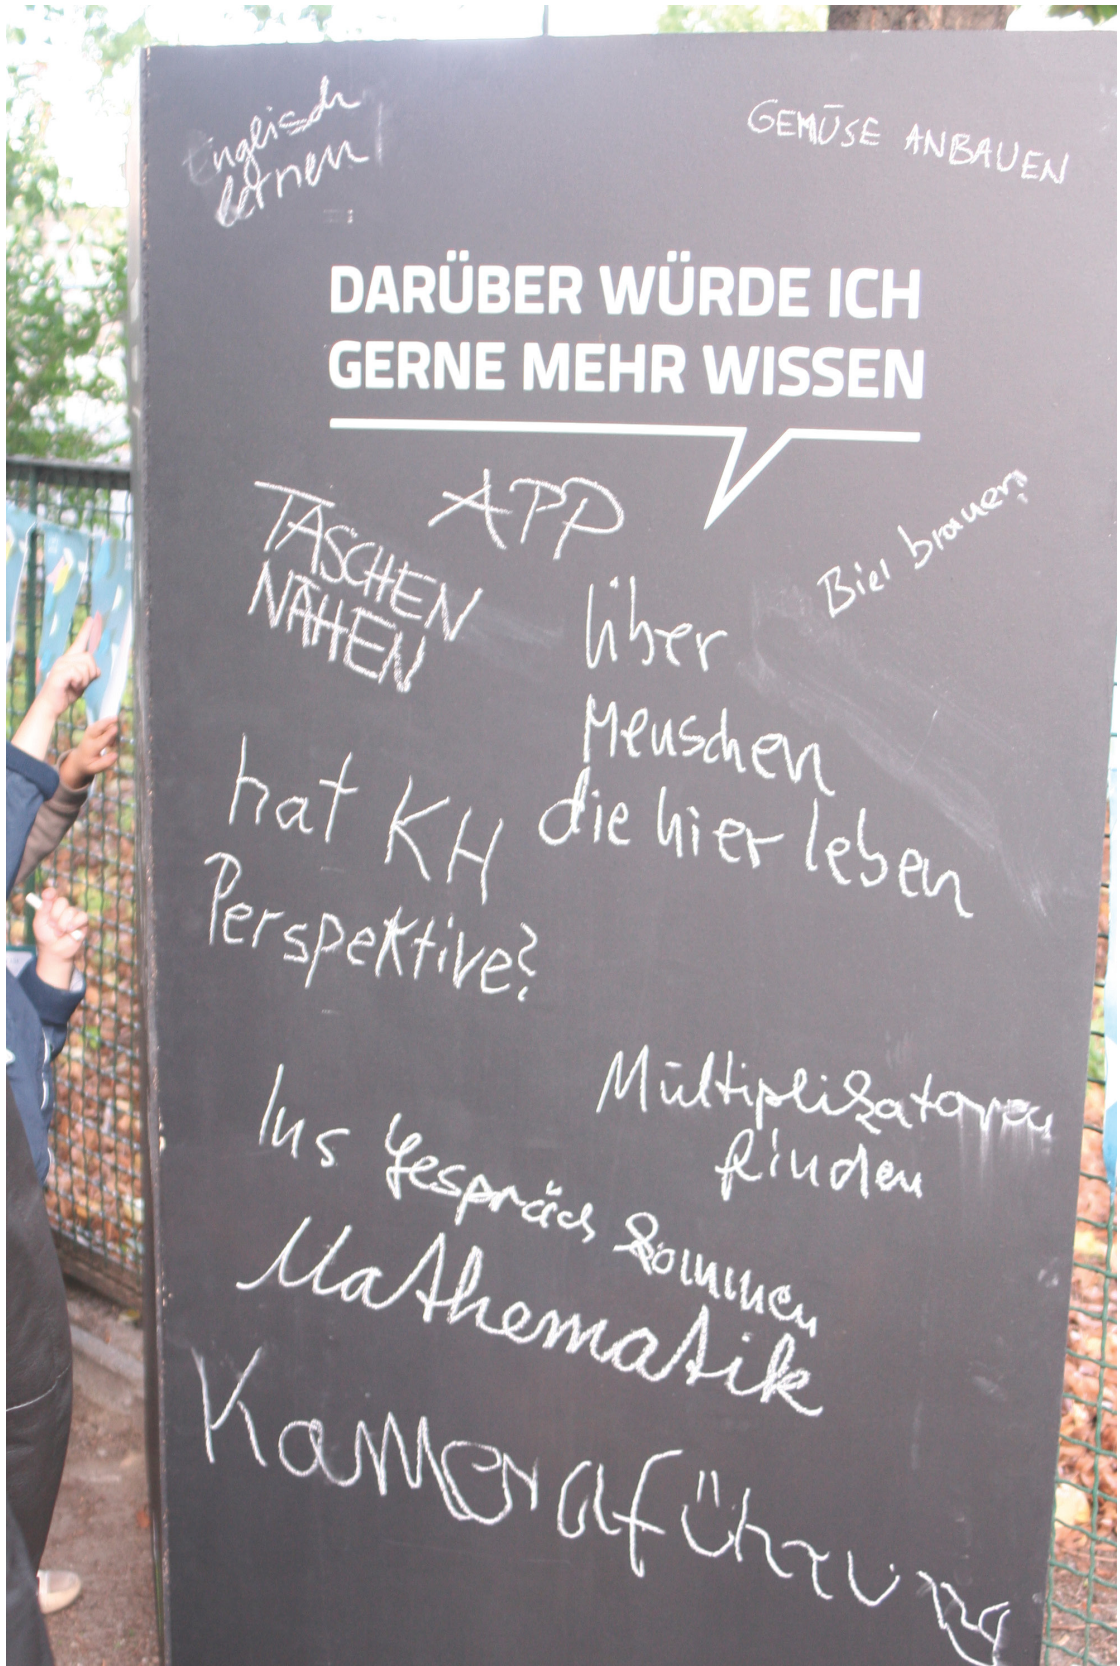 Englisch
lernen!
GEMÜSE ANBAUEN
DARÜBER WÜRDE ICH
GERNE MEHR WISSEN
APP
TASCHEN
NÄHEN
Bier brauen
Über
Menschen
die hier leben
hat KH
Perspektive?
Multiplikatoren
finden
Ins Gespräch kommen
Mathematik
Kameraführung